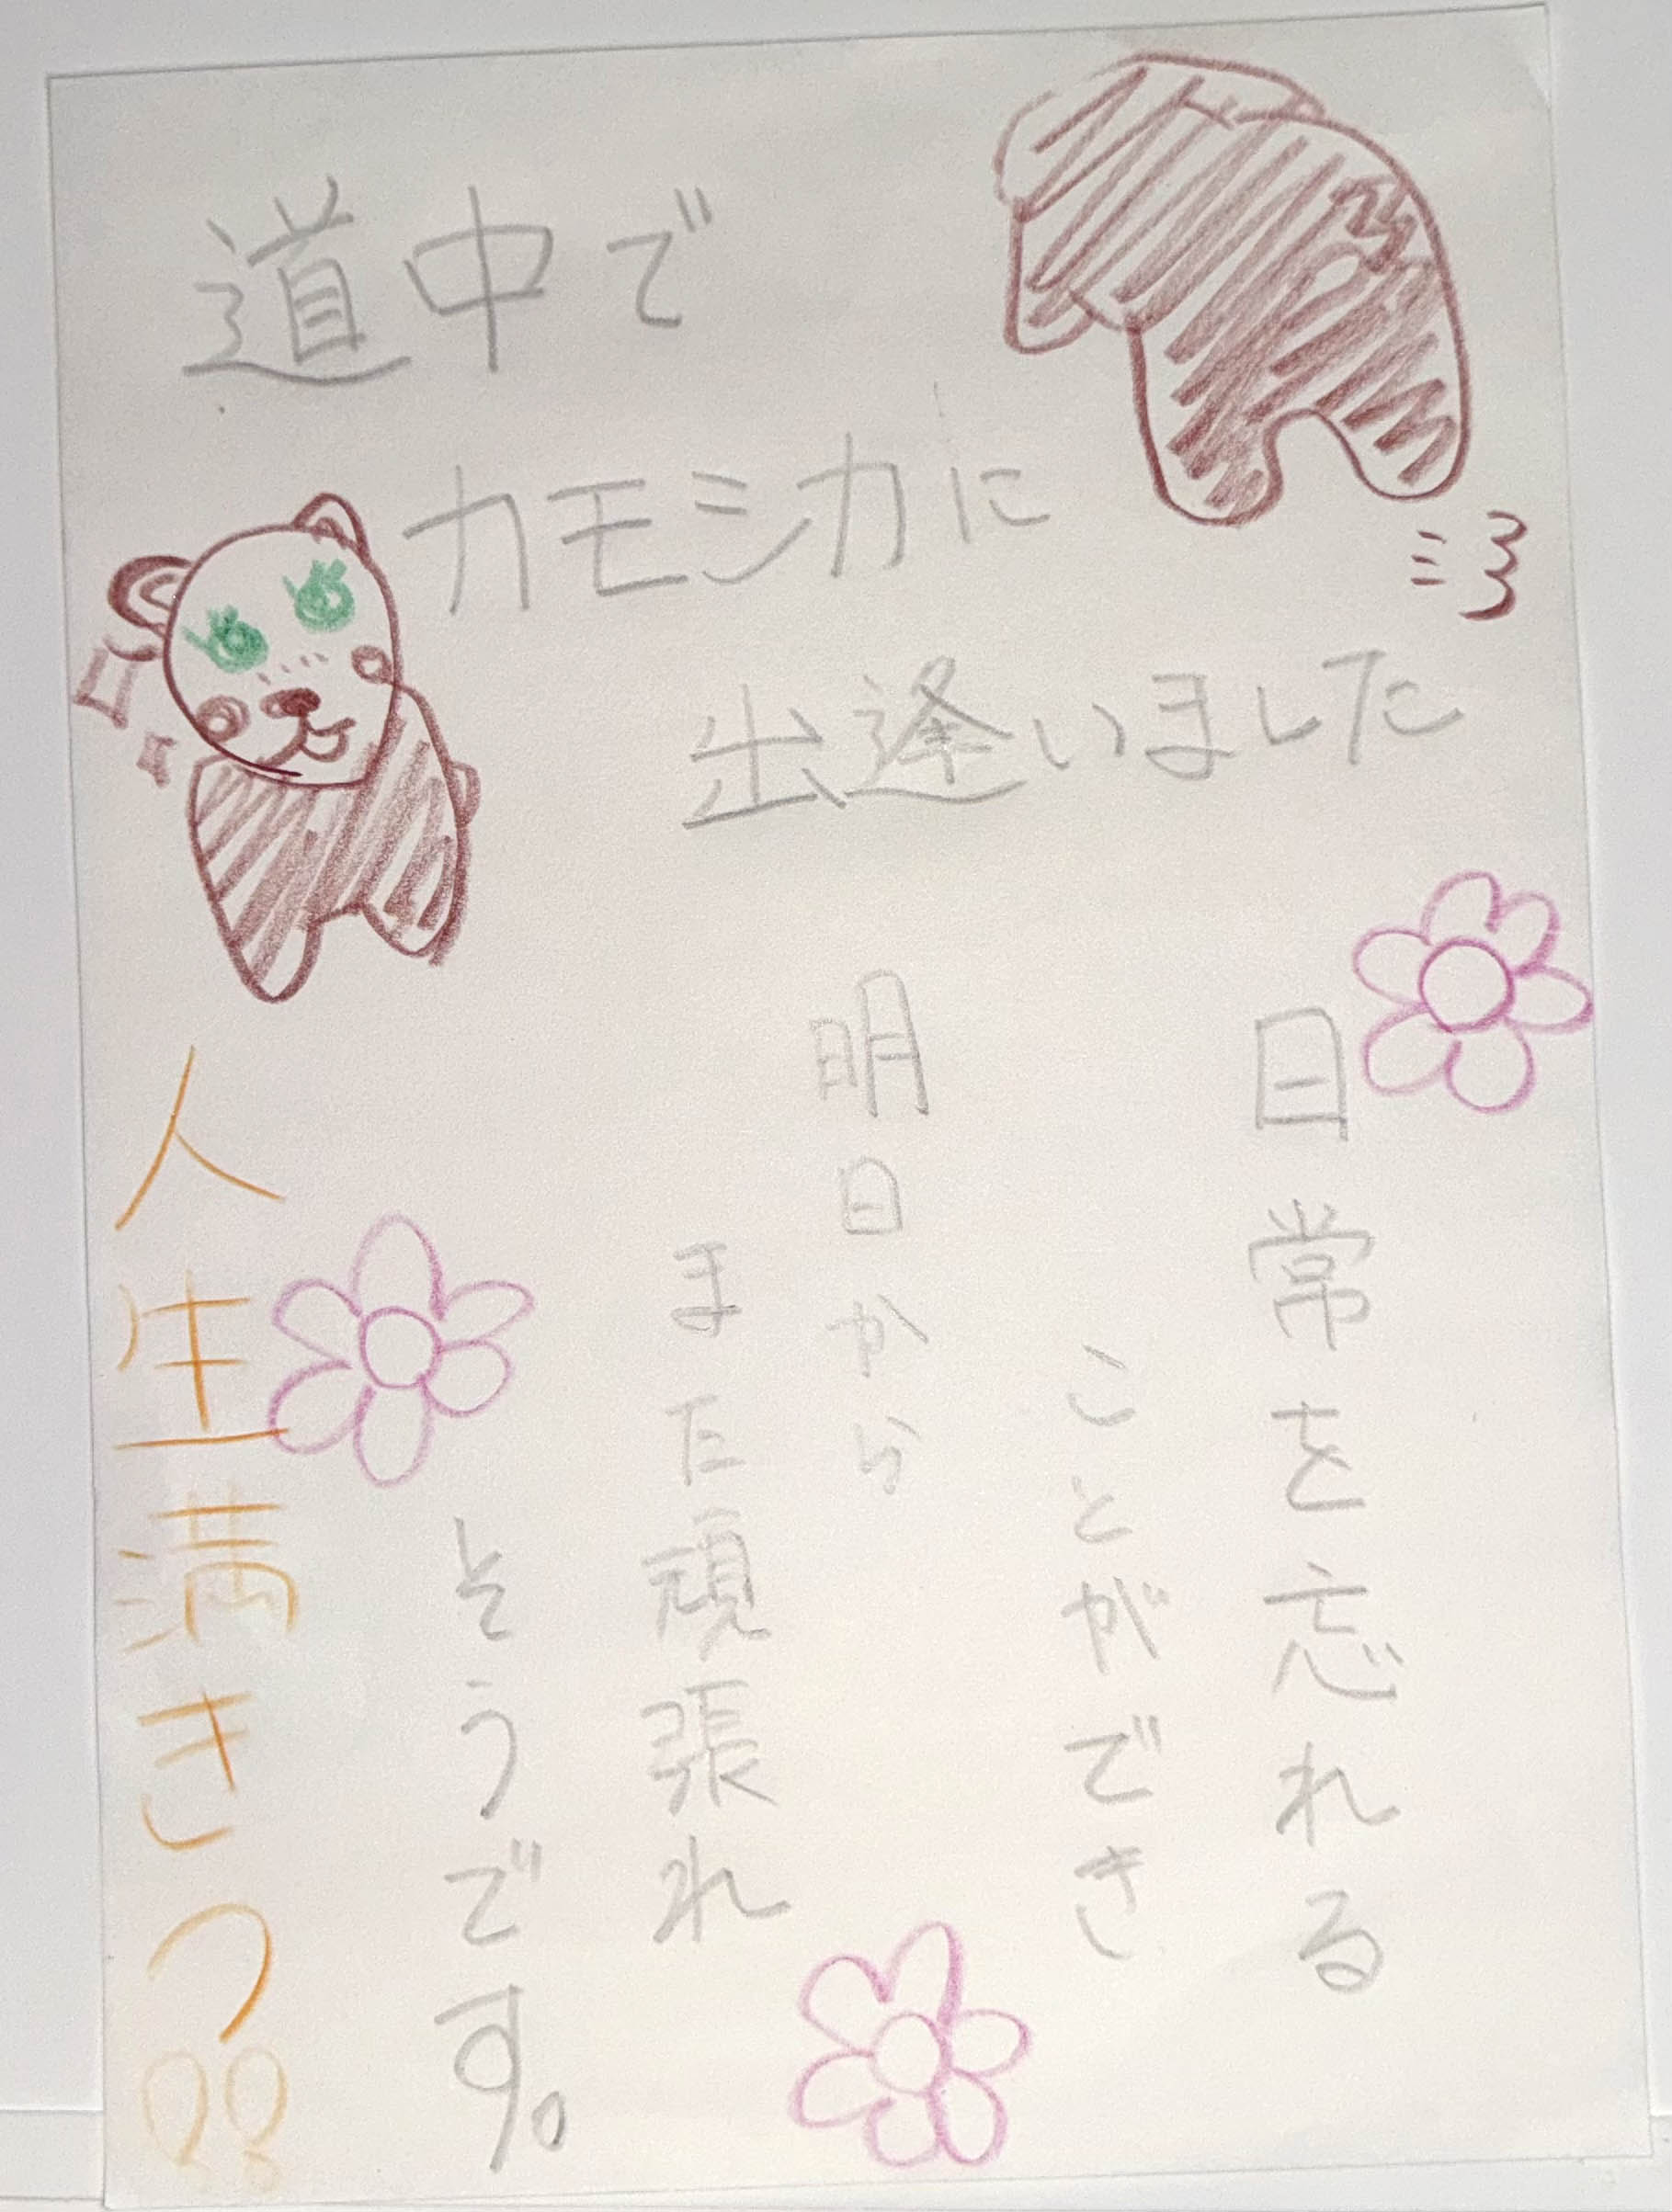 道中で
カモシカに
出逢いました
日常を忘れる
ことができ
明日から
また頑張れ
そうです。
人生満きつ!!